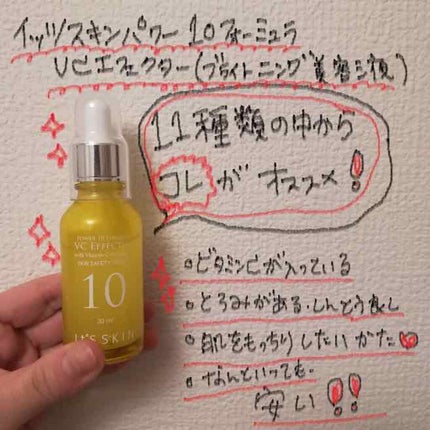 イッツスキンパワー10フォーミュラ
VCエフェクター(ブライトニング美容液)
11種類の中から
コレがオススメ!
POWER 10 FORMULA
VC EFFECTOR
10
30 ml
It'S SKIN
○ビタミンCが入っている
○とろみがある・しんとう良し
○肌をもっちりしたいかた♥
○なんといっても・
安い!!